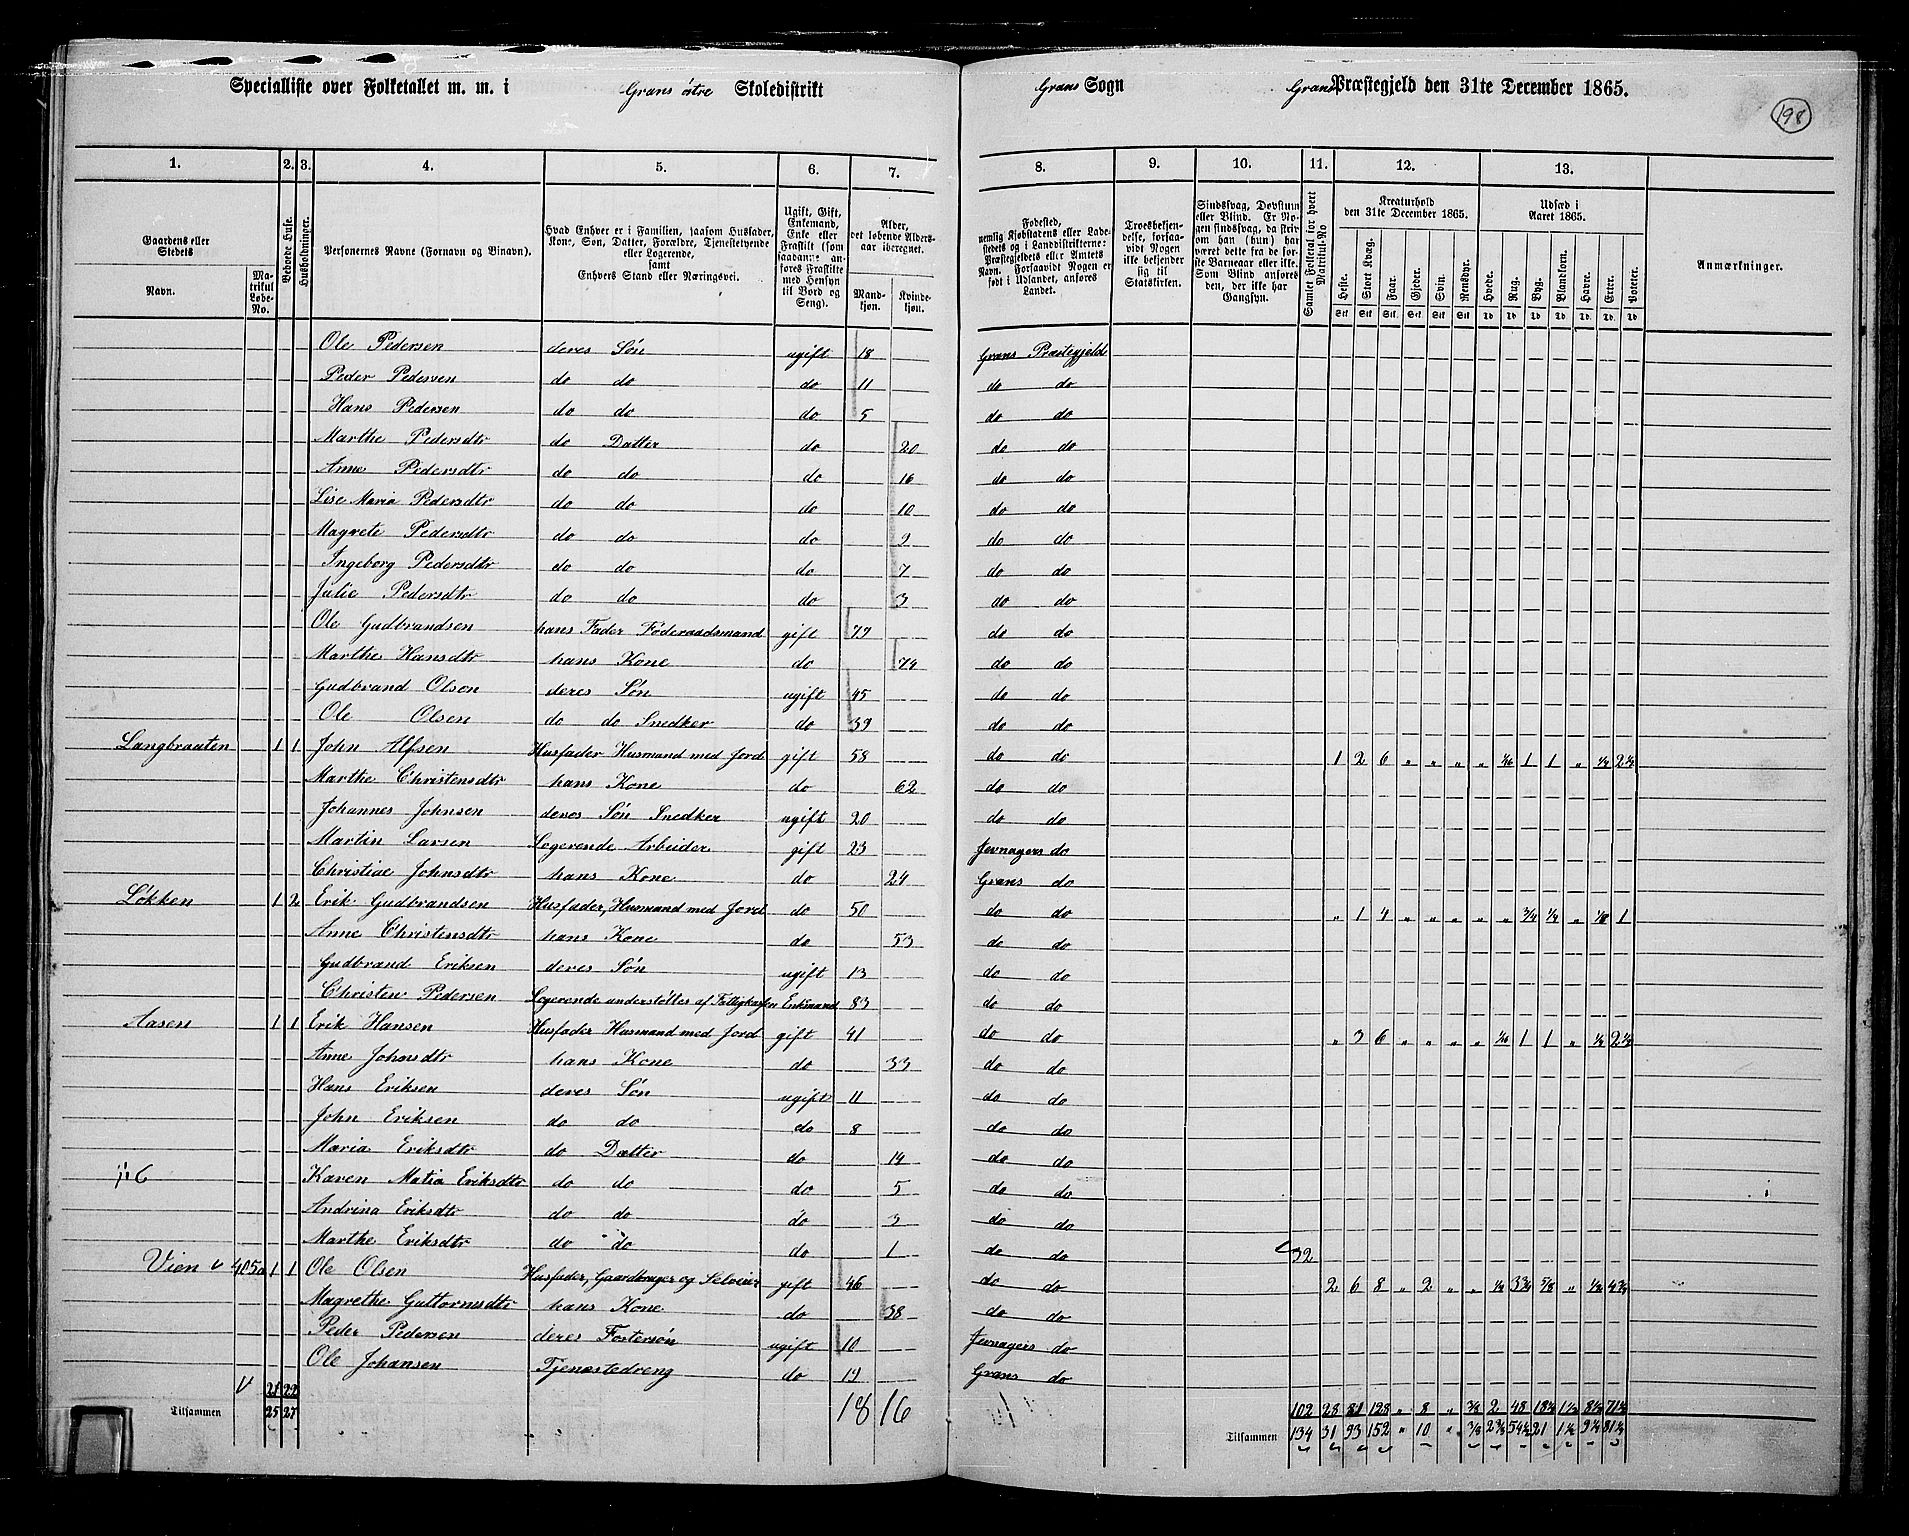 Specialliste over Folketallet m. m. i Grans östre Skoledistrikt Grans Sogn Grans Præstegjeld den 31te December 1865.
198
1. 2. 3. 4. 5. 6. 7. 8. 9. 10. 11. 12. 13.
Gaardens eller Stedets Navn.
Matrikul Løbe-No.
Beboede Huse.
Husholdninger.
Personernes Navne (Fornavn og Binavn).
Hvad Enhver er i Familien, saasom Husfader, Kone, Søn, Datter, Forældre, Tjenestetyende eller Logerende, samt Enhvers Stand eller Næringsvei.
Ugift, Gift, Enkemand, Enke eller Fraskilt (som saadanne anføres Fraskilte med Hensyn til Bord og Seng).
Alder, det løbende Alders- aar iberegnet.
Mandkjøn. Kvindekjøn.
Fødested, nemlig Kjøbstadens eller Ladestedets og i Landdistrikterne: Præstegjeldets eller Amtets Navn. Forsaavidt Nogen er født i Udlandet, anføres Landet.
Troesbekjendelse, forsaavidt Nogen ikke bekjender sig til Statskirken.
Sindssvag, Døvstum eller Blind. Er Nogen sindssvag, da skrives om han (hun) har været dette fra de første Barneaar eller ikke. Som Blind anføres den, der ikke har Gangsyn.
Samlet Folketal for hvert Matrikul-No
Kreaturhold den 31te December 1865.
Heste. Stort Kvæg. Faar. Gjeder. Svin. Rensdyr.
Udsæd i Aaret 1865.
Hvede. Rug. Byg. Blandkorn. Havre. Erter. Poteter.
Anmærkninger.
Stk Stk Stk Stk Stk Stk Td Td Td Td Td Td Td
Ole Pedersen deres Søn ugift 18 Grans Præstegjeld
Peder Pedersen do do do 11 do do
Hans Pedersen do do do 5 do do
Marthe Pedersdtr do Datter do 20 do do
Anne Pedersdtr do do do 16 do do
Lise Maria Pedersdtr do do do 10 do do
Magrete Pedersdtr do do do 9 do do
Ingeborg Pedersdtr do do do 7 do do
Julie Pedersdtr do do do 3 do do
Ole Gudbrandsen hans Fader Föderaadsmand gift 77 do do
Marthe Hansdtr hans Kone do 74 do do
Gudbrand Olsen deres Søn ugift 45 do do
Ole Olsen do do Snedker do 39 do do
Langbraaten 1 1 John Alfsen Husfader Husmand med Jord gift 58 do do 1 2 6 " " " " 1/16 1 1 " 1/4 2½
Marthe Christensdtr hans Kone do 62 do do
Johannes Johnsen deres Søn Snedker ugift 20 do do
Martin Larsen Logerende Arbeider gift 23 Jevnagers do
Christiae Johnsdtr hans Kone do 24 Grans do
Løkken 1 2 Erik Gudbrandsen Husfader, Husmand med Jord do 50 do do " 1 4 " " " " " 3/4 1/4 " 1/8 1
Anne Christensdtr hans Kone do 53 do do
Gudbrand Eriksen deres Søn ugift 13 do do
Christen Pedersen Logerende understøttes af Fattigkassen Enkemand 83 do do
Aasen 1 1 Erik Hansen Husfader Husmand med Jord gift 41 do do " 3 6 " " " " 1/16 1 1 " 1/4 2½
Anne Johnsdtr hans Kone do 33 do do
Hans Eriksen deres Søn ugift 11 do do
John Eriksen do do do 8 do do
Maria Eriksdtr do Datter do 14 do do
Karen Matia Eriksdtr do do do 5 do do
Andrina Eriksdtr do do do 3 do do
Marthe Eriksdtr do do do 1 do do 32
Vien 405a 1 1 Ole Olsen Husfader, Gaardbruger og Selveier gift 46 do do 2 6 8 " 2 " " 1/4 3¾ 5/8 " 1/2 4¾
Magrethe Guttormsdtr hans Kone do 38 do do
Peder Pedersen deres Fostersøn ugift 10 Jevnagers do
Ole Johansen Tjenestedreng do 14 Grans do
21 22 102 28 81 128 " 8 " 3/8 2 48 18½ 1½ 8½ 71½
Tilsammen 25 27 18 16 Tilsammen 134 31 93 152 " 10 " 3/8 2⅜ 54½ 21 1½ 9¼ 81¼